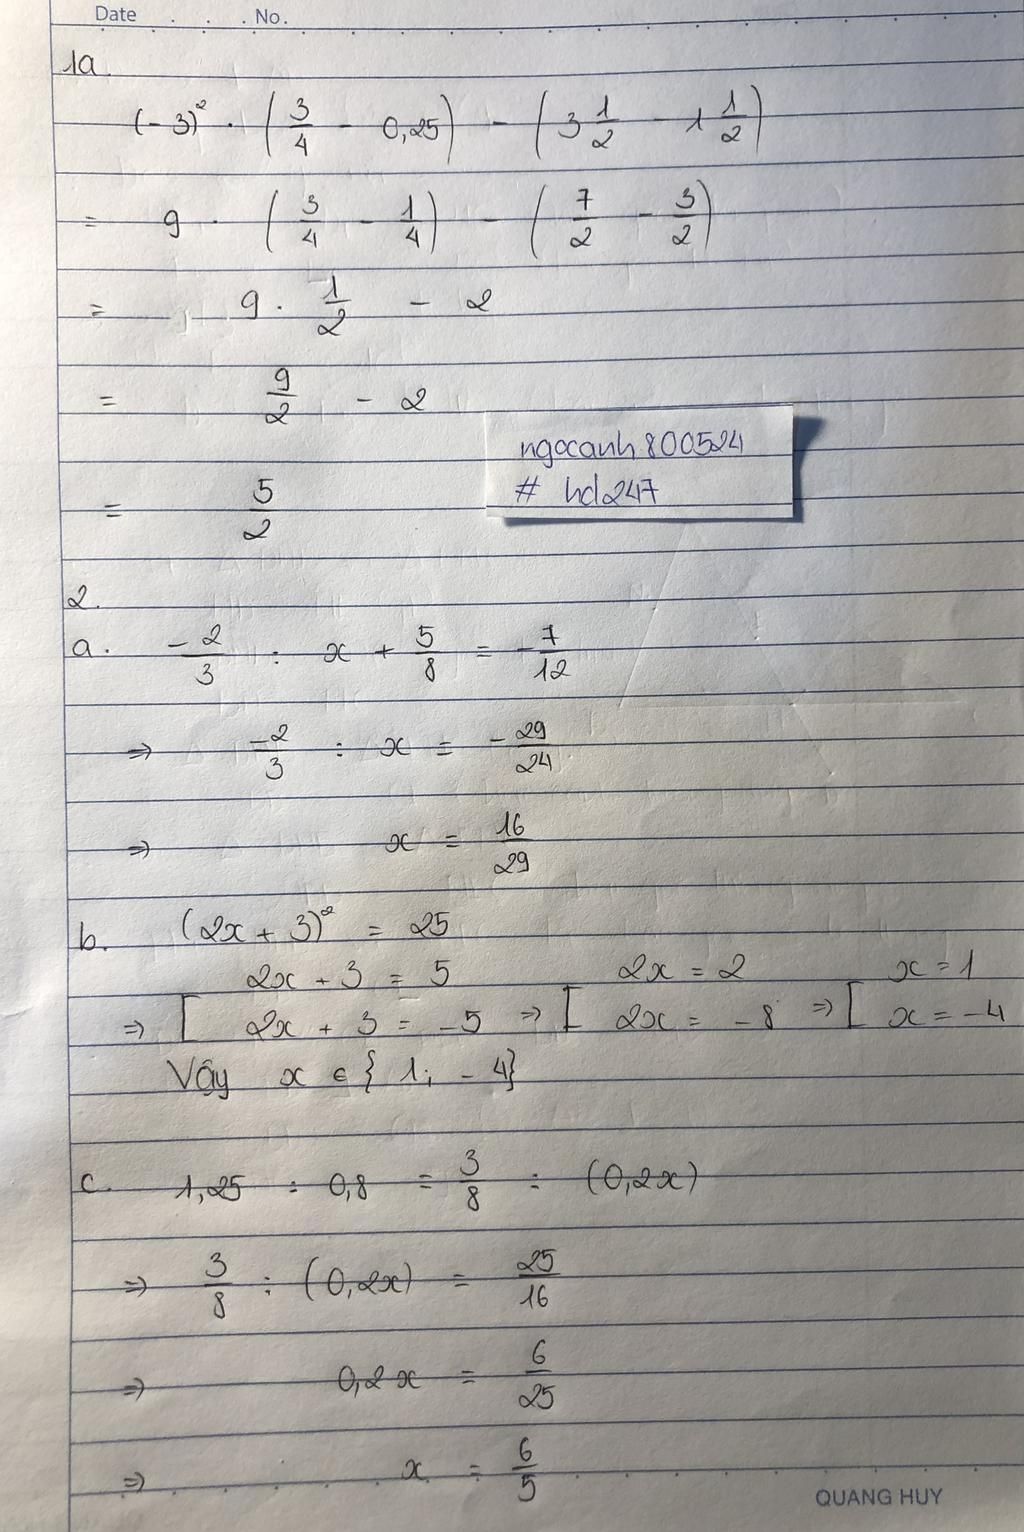 Date No.
1a.
(-3)² . (3/4 - 0,25) - (3 1/2 - 1 1/2)
= 9 . (3/4 - 1/4) - (7/2 - 3/2)
= 9 . 1/2 - 2
= 9/2 - 2
ngocanh800524
# hd247
= 5/2
2.
a. -2/3 : x + 5/8 = -7/12
⇒ -2/3 : x = -29/24
⇒ x = 16/29
b. (2x + 3)² = 25
⇒ [ 2x + 3 = 5 ⇒ [ 2x = 2 ⇒ [ x = 1
2x + 3 = -5 2x = -8 x = -4
Vậy x ∈ { 1; -4}
c. 1,25 : 0,8 = 3/8 : (0,2x)
⇒ 3/8 : (0,2x) = 25/16
⇒ 0,2x = 6/25
⇒ x = 6/5
QUANG HUY